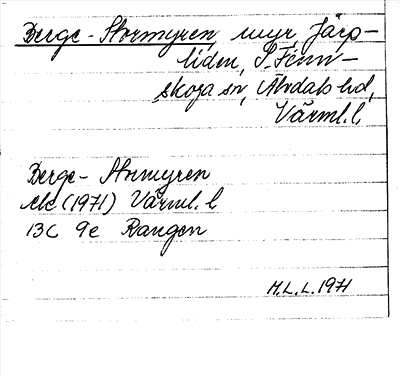 Berge-Stormyren, myr Järp-
liden, S. Finn-
skoga sn, Älvdals hd,
Värml. l.
Berge-Stormyren
ek (1971) Värml. l
13C 9e Rangen
M.L.L. 1971